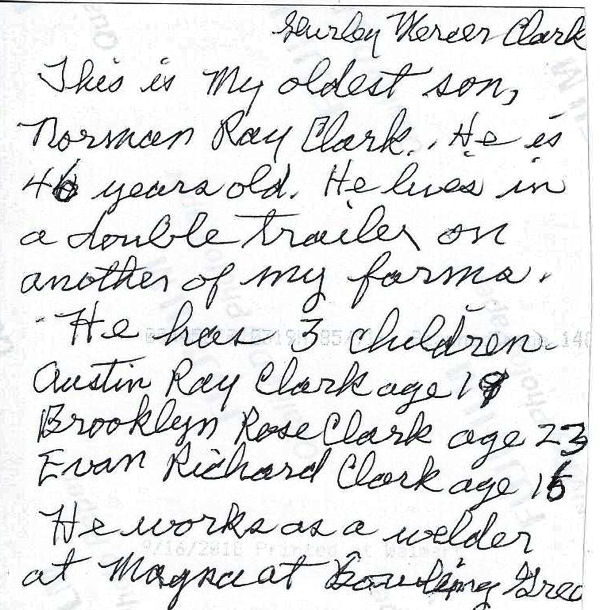 Shurley Mercer Clark
This is my oldest son,
Norman Ray Clark. He is
46 years old. He lives in
a double trailer on
another of my farms.
He has 3 children.
Austin Ray Clark age 19
Brooklyn Rose Clark age 23
Evan Richard Clark age 16
He works as a welder
at Magna at Bowling Gree